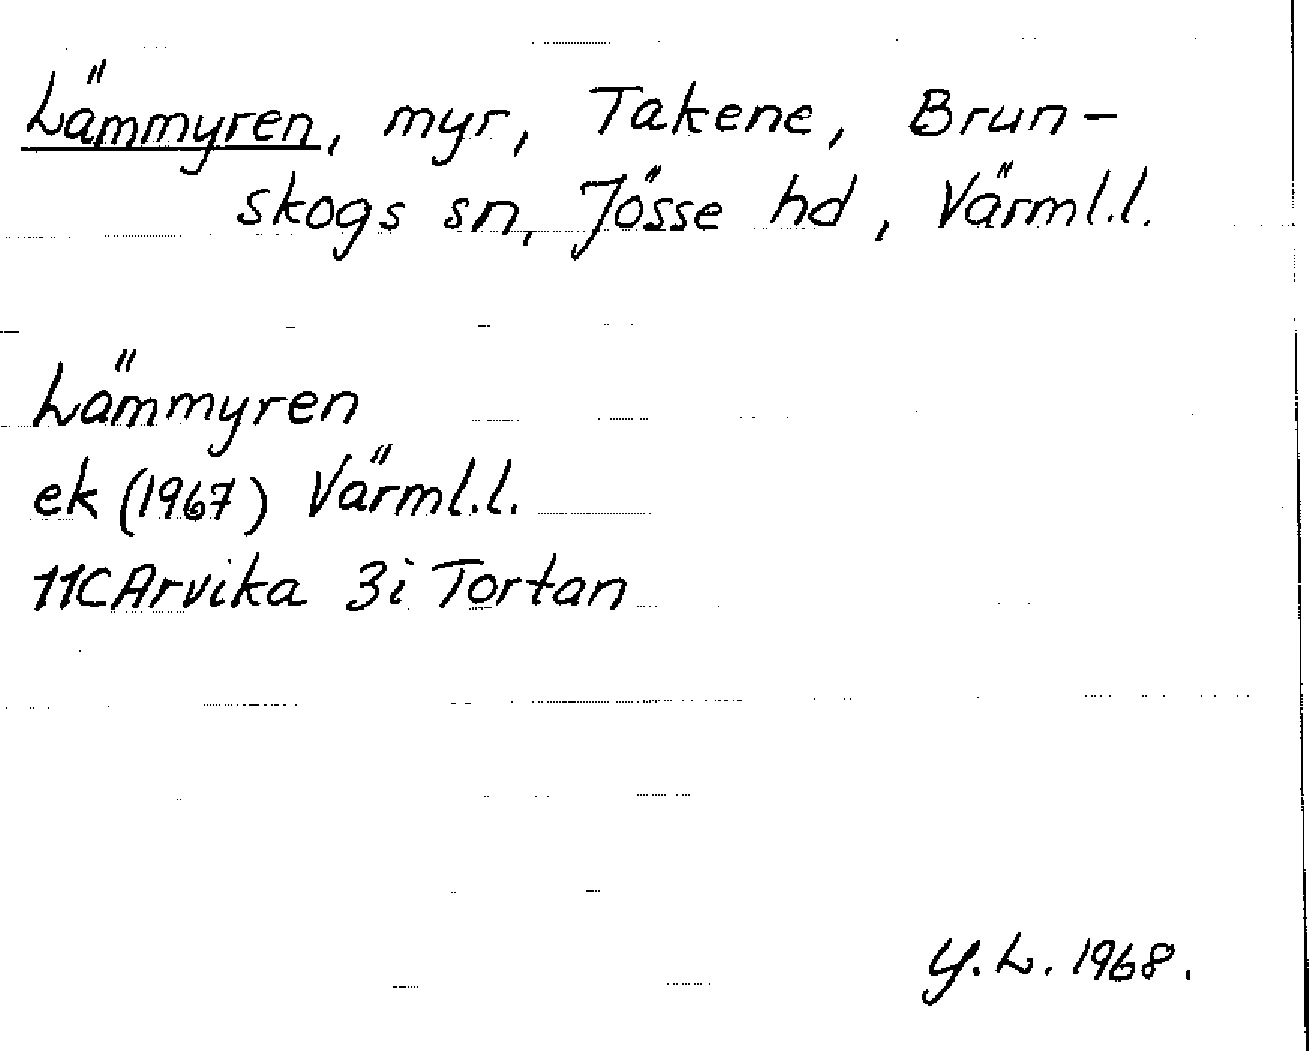 Lämmyren, myr, Takene, Brun-
skogs sn, Jösse hd, Värml.l.
Lämmyren
ek (1967) Värml.l.
11C Arvika 3i Tortan
Y.L. 1968.